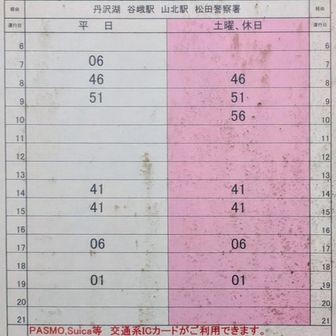 経由 丹沢湖 谷峨駅 山北駅 松田警察署 経由
運行日 平 日 土曜、休日 運行日
6 6
7 06 7
8 46 46 8
9 51 51 9
10 56 10
11 11
12 12
13 13
14 41 41 14
15 41 41 15
16 16
17 06 06 17
18 18
19 01 01 19
20 20
21 21
PASMO,Suica等 交通系ICカードがご利用できます。